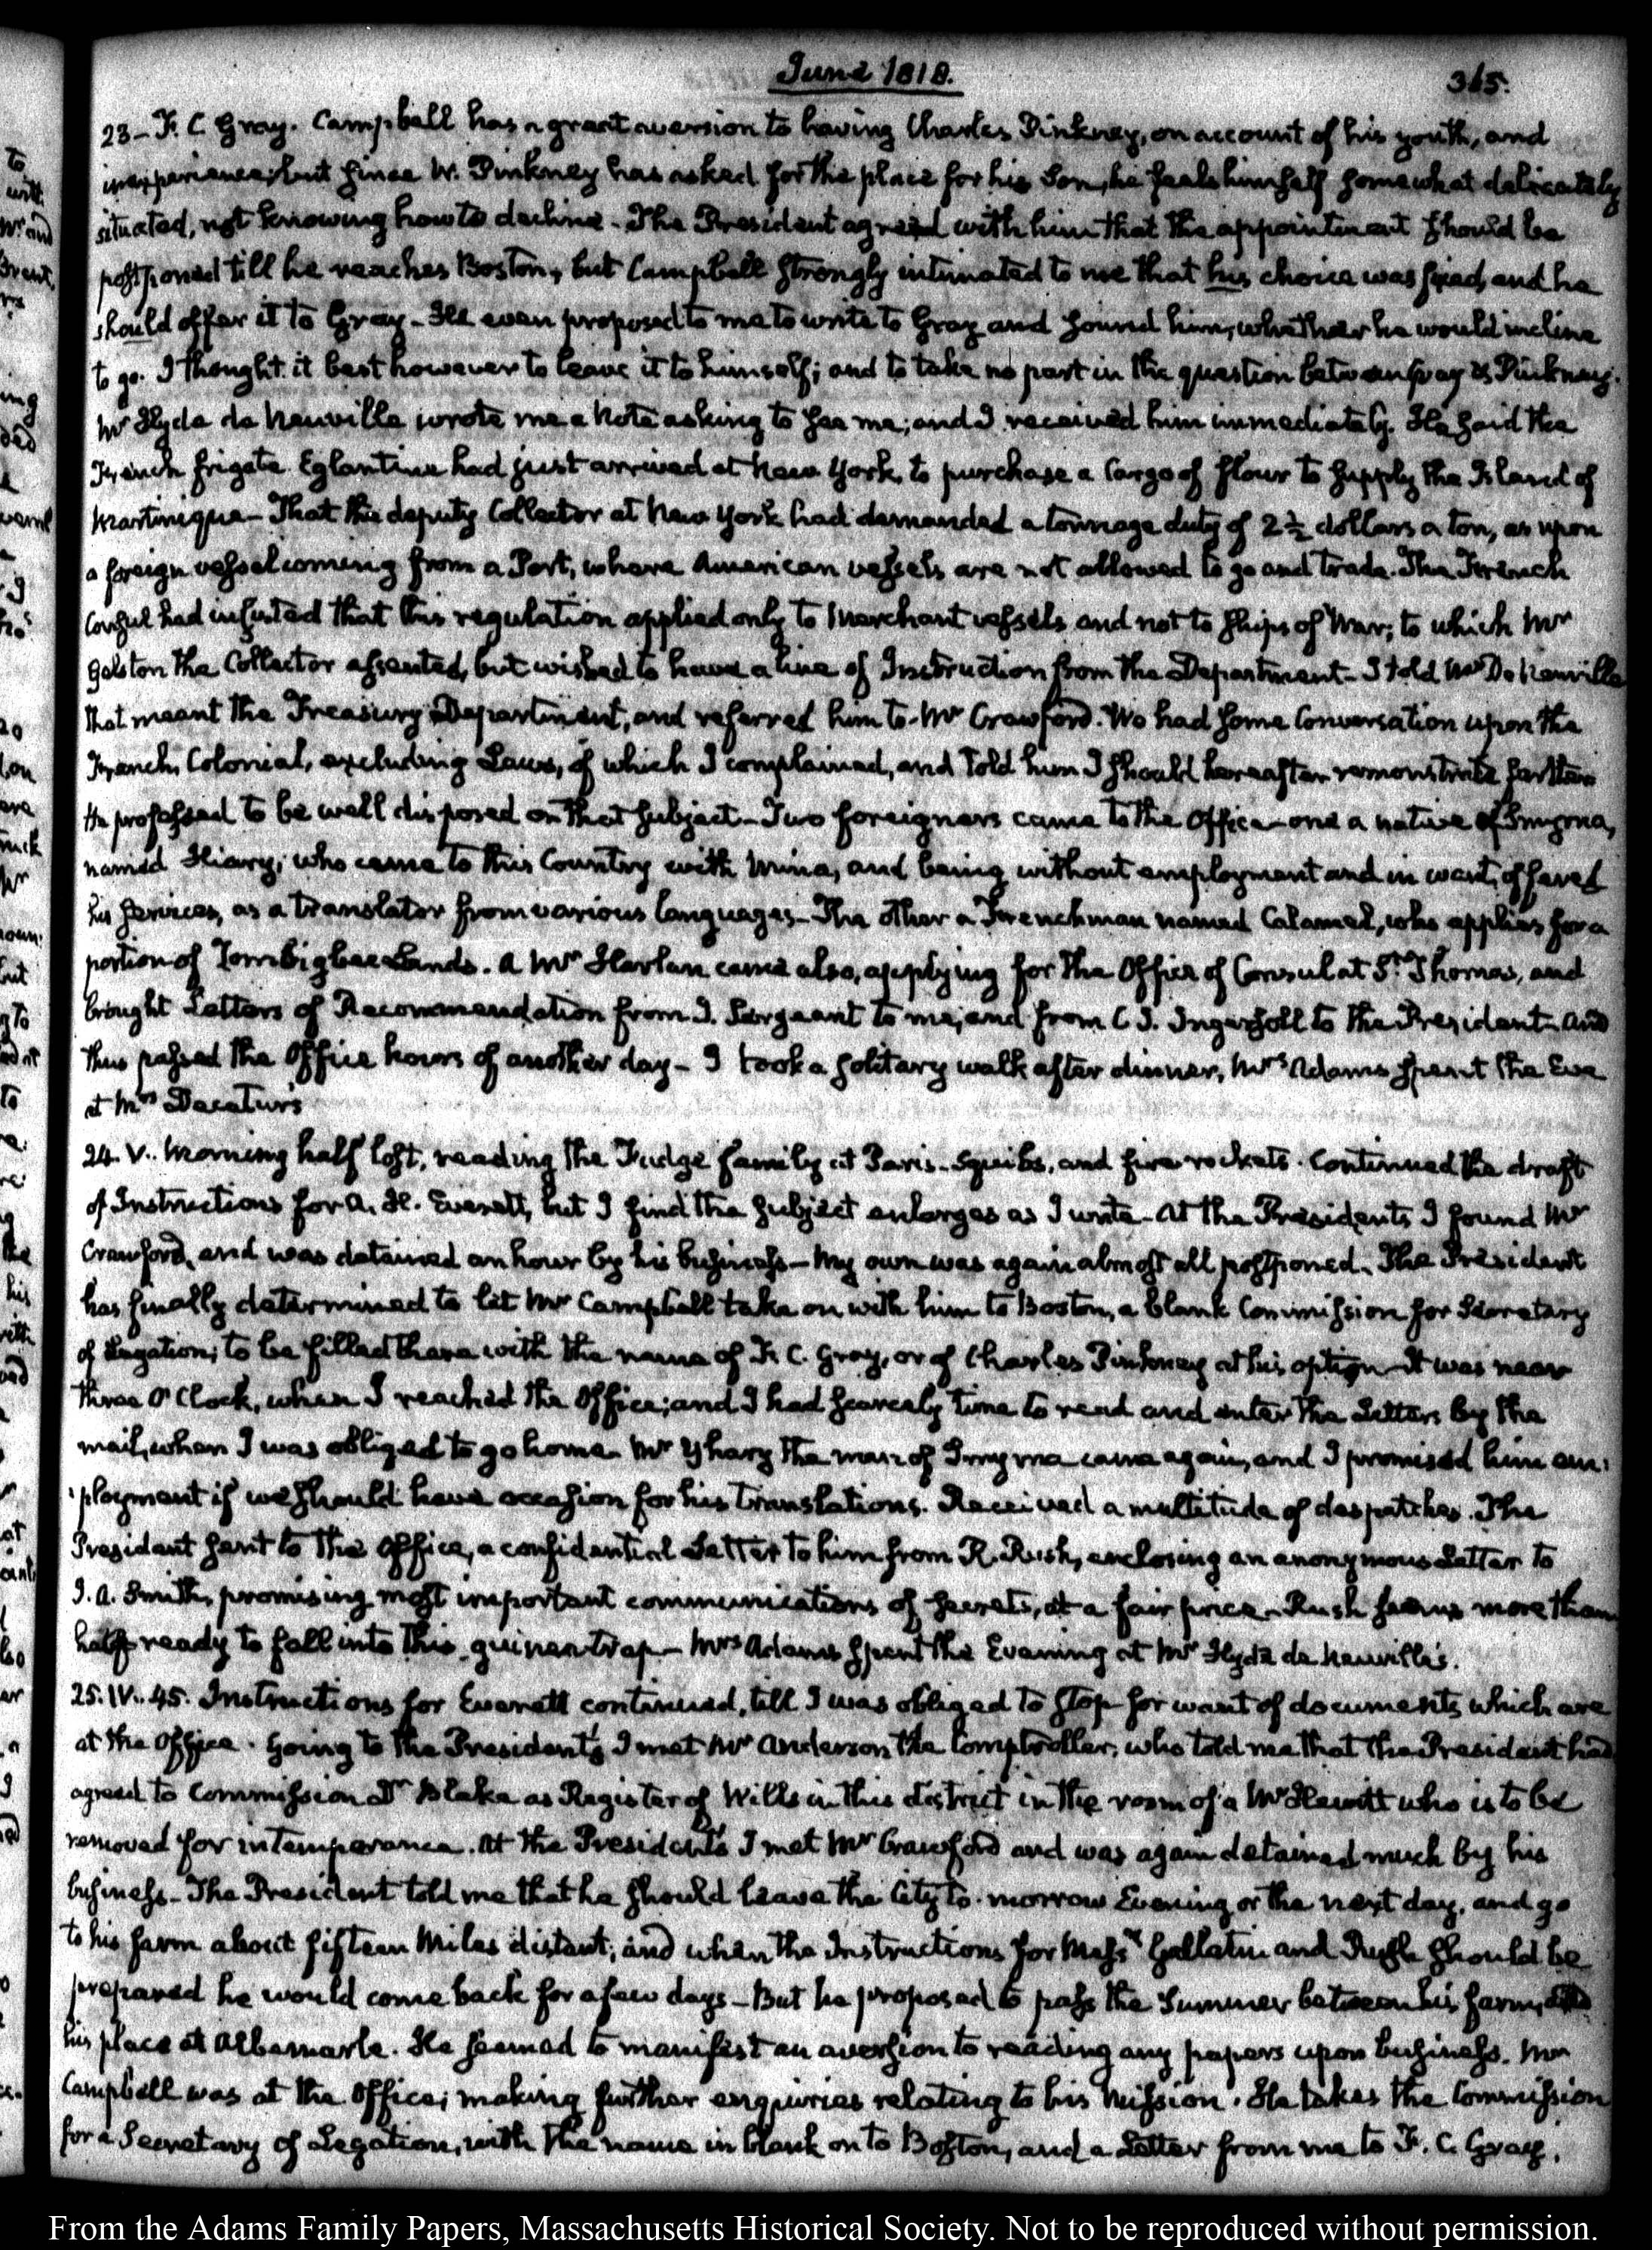 June 1818.
365.
23 – F. C. Gray. Campbell has a great aversion to having Charles Pinkney, on account of his youth, and
inexperience; but since W. Pinkney has asked for the place for his Son, he feels himself somewhat delicately
situated, not knowing how to decline – The President agreed with him that the appointment should be
postponed till he reaches Boston, but Campbell strongly intimated to me that his choice was fixed, and he
should offer it to Gray – He even proposed to me to write to Gray and sound him, whether he would incline
to go. I thought it best however to leave it to himself; and to take no part in the question between Gray & Pinkney.
Mr Hyde de Neuville wrote me a Note asking to see me; and I received him immediately. He said the
French frigate Eglantine had just arrived at New York, to purchase a Cargo of flour to supply the Island of
Martinique – That the deputy Collector at New York had demanded a tonnage duty of 2½ dollars a ton, as upon
a foreign vessel coming from a Port, where American vessels are not allowed to go and trade. The French
Consul had insisted that this regulation applied only to Merchant vessels and not to ships of War; to which Mr
Gelston the Collector assented, but wished to have a line of Instruction from the Department – I told Mr De Neuville
that meant the Treasury Department, and referred him to Mr Crawford. We had some Conversation upon the
French, Colonial, excluding Laws, of which I complained, and told him I should hereafter remonstrate further
He professed to be well disposed on that subject – Two foreigners came to the Office – one a native of Smyrna,
named Hiary, who came to this Country with Mina, and being without employment and in want, offered
his services, as a translator from various languages – The other a Frenchman named Calamed, who applies for a
portion of Tombigbee Lands. A Mr Harlan came also, applying for the Office of Consul at St. Thomas, and
brought Letters of Recommendation from J. Sergeant to me, and from C. J. Ingersoll to the President – And
thus passed the Office hours of another day – I took a solitary walk after dinner, Mrs Adams spent the Eve
at Mrs Decatur's
24. V.. Morning half lost, reading the Fudge family at Paris – Squibs, and fire rockets. Continued the draft
of Instructions for A. H. Everett, but I find the subject enlarges as I write – At the Presidents I found Mr
Crawford, and was detained an hour by his business – My own was again almost all postponed. The President
has finally determined to let Mr Campbell take on with him to Boston, a blank Commission for Secretary
of Legation; to be filled there with the name of F. C. Gray, or of Charles Pinkney at his option – It was near
three O'Clock, when I reached the Office; and I had scarcely time to read and enter the Letters by the
mail, when I was obliged to go home – Mr Yhary the man of Smyrna came again, and I promised him em:
:ployment if we should have occasion for his translations. Received a multitude of despatches. The
President sent to the Office, a confidential Letter to him from R. Rush, enclosing an anonymous Letter to
J. A. Smith, promising most important communications of secrets, at a fair price – Rush seems more than
half ready to fall into this guinea trap – Mrs Adams spent the Evening at Mr Hyde de Neuville's.
25. IV. 45. Instructions for Everett continued, till I was obliged to stop for want of documents which are
at the Office. Going to the President's I met Mr Anderson the Comptroller, who told me that the President had
agreed to Commission Dr Blake as Register of Wills in this district in the room of a Mr Hewitt who is to be
removed for intemperance. At the President's I met Mr Crawford and was again detained much by his
business – The President told me that he should leave the City to-morrow Evening or the next day, and go
to his farm about fifteen Miles distant; and when the Instructions for Messrs Gallatin and Rush should be
prepared he would come back for a few days – But he proposed to pass the Summer between his farm, and
his place at Albemarle. He seemed to manifest an aversion to reading any papers upon business. Mr
Campbell was at the Office; making further enquiries relating to his Mission. He takes the Commission
for a Secretary of Legation, with the name in blank on to Boston, and a Letter from me to F. C. Gray.
From the Adams Family Papers, Massachusetts Historical Society. Not to be reproduced without permission.